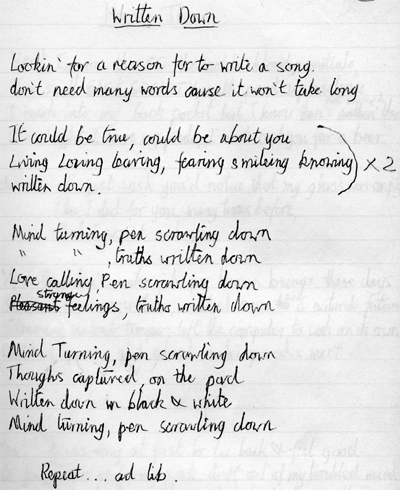 Written Down
Lookin' for a reason for to write a song.
don't need many words cause it won't take long
It could be true, could be about you
Living Loving leaving, fearing smiling knowing
written down. x 2
Mind turning, pen scrawling down
" " , truths written down
Love calling, Pen scrawling down
stronger
Pleasant feelings, truths written down
Mind Turning, pen scrawling down
Thoughs captured, on the pad
Written down in black & white
Mind turning, pen scrawling down
Repeat... ad lib.